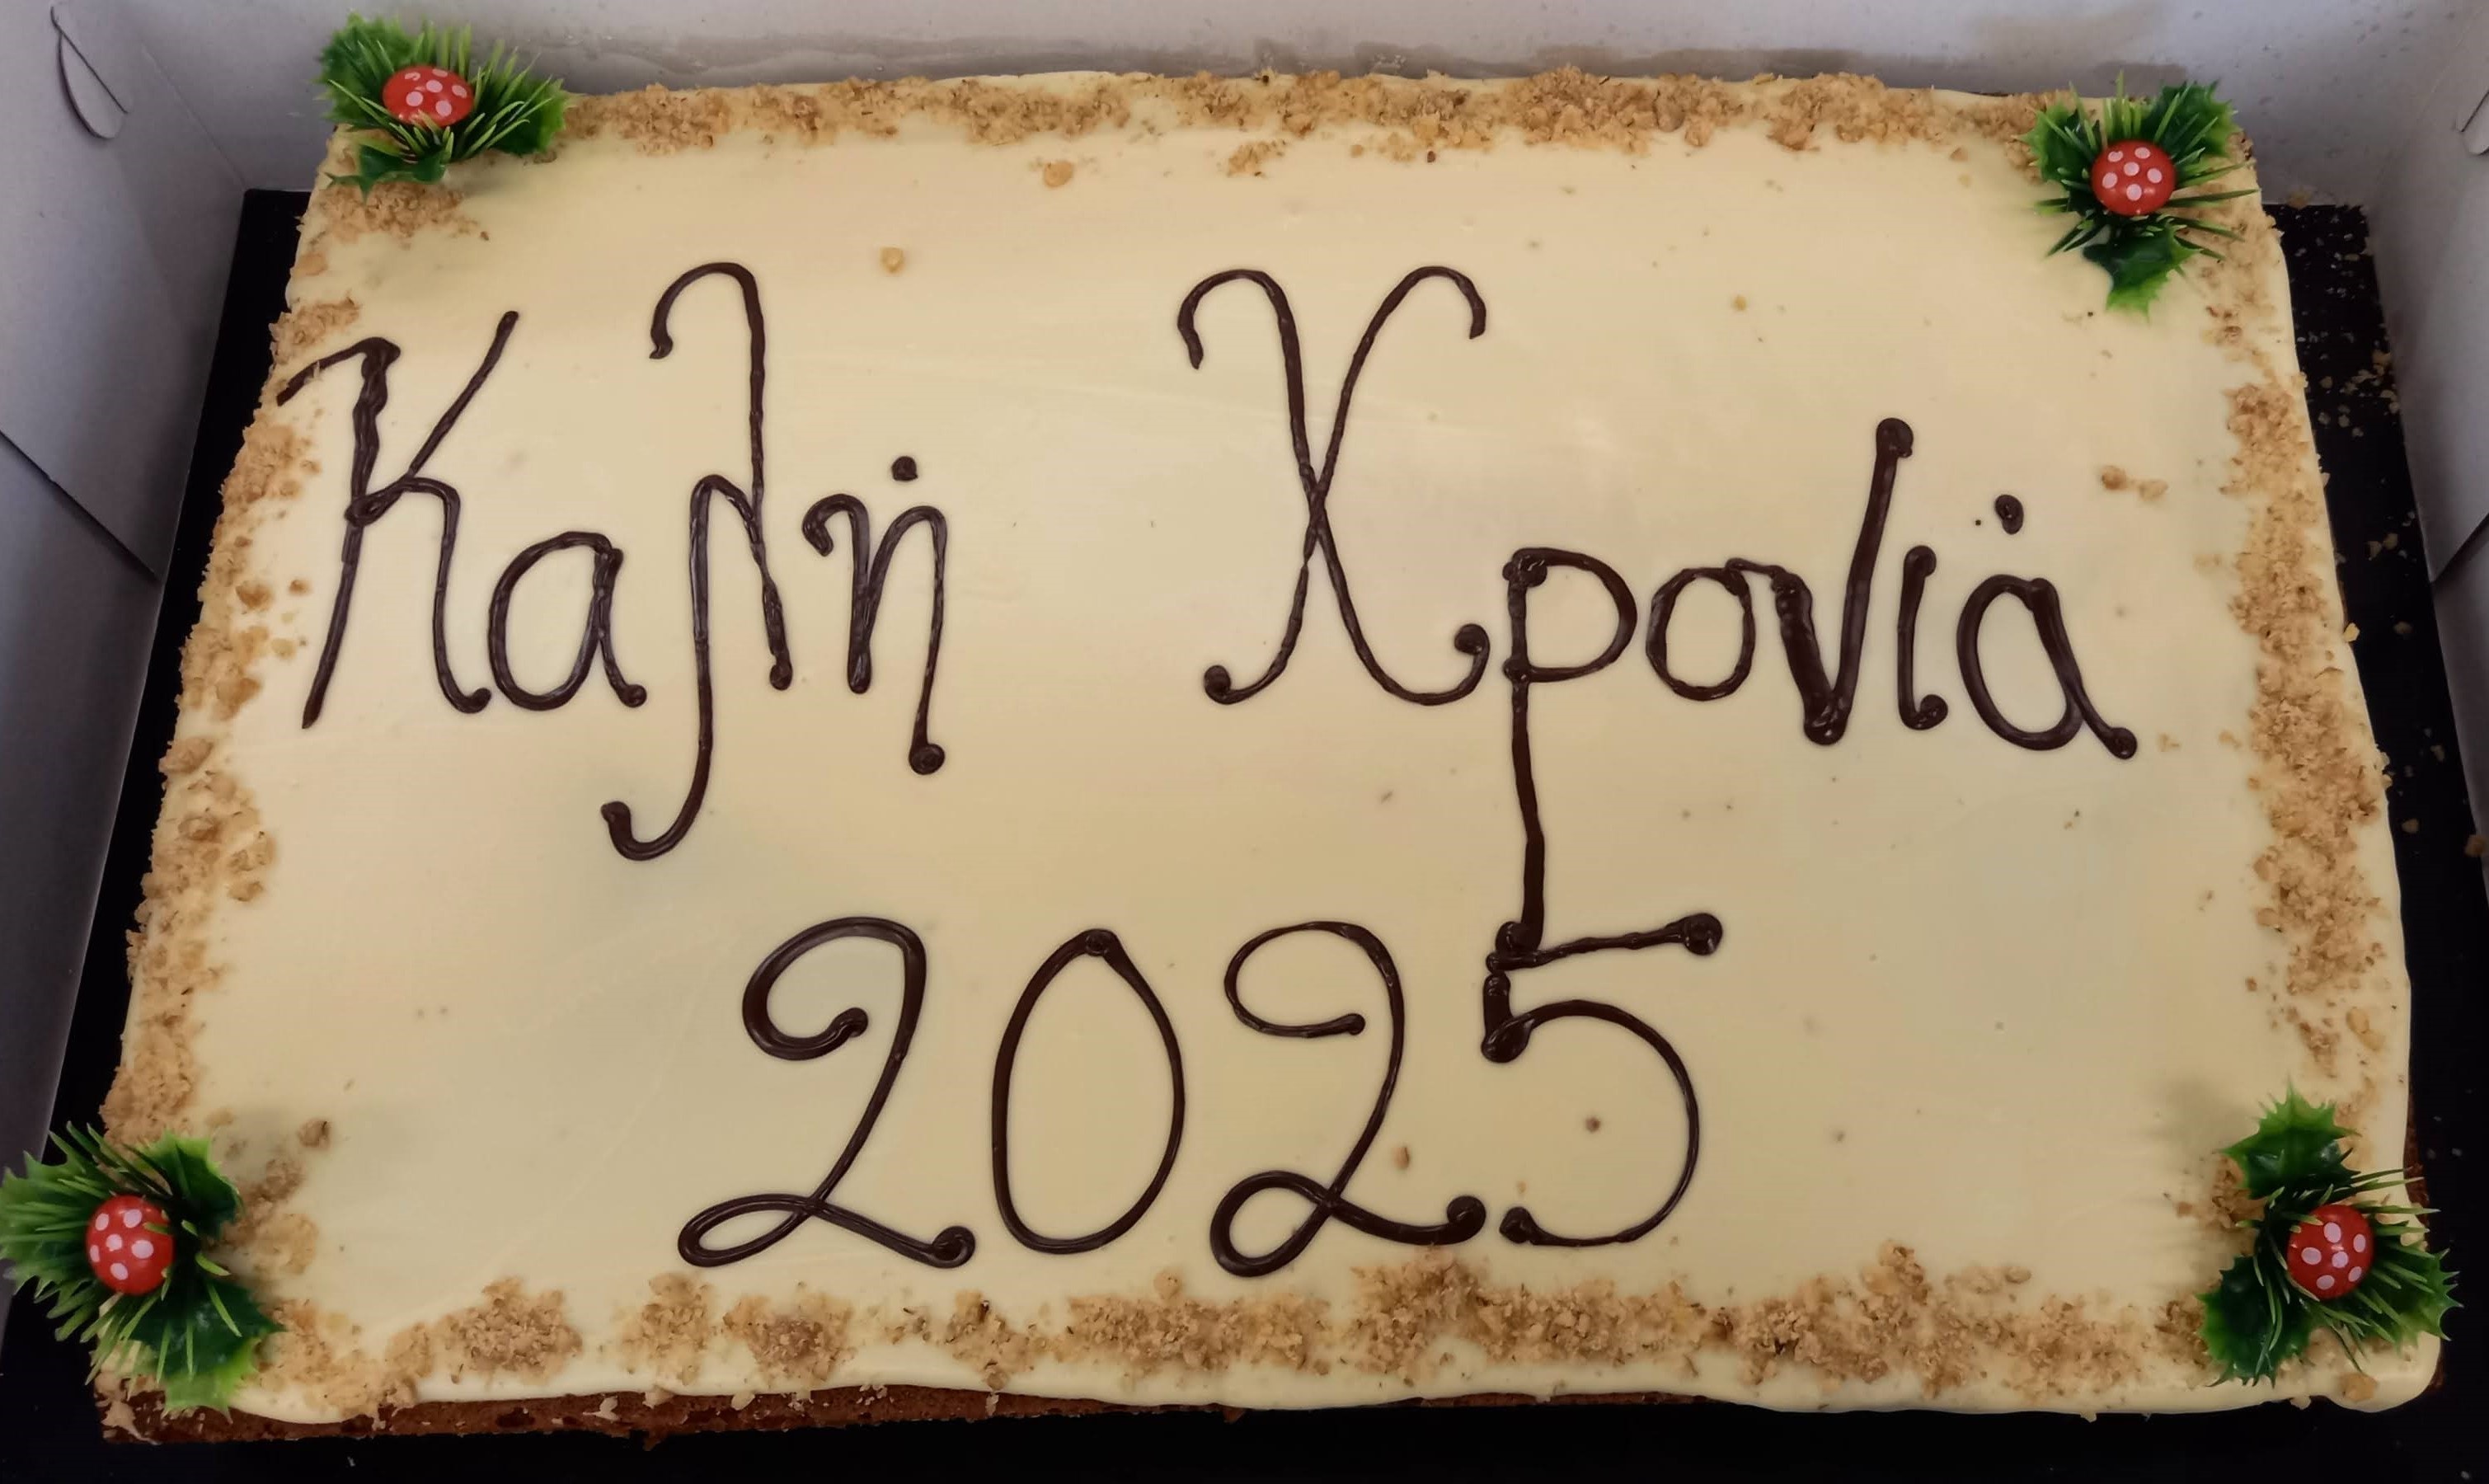 Καλή Χρονιά
2025